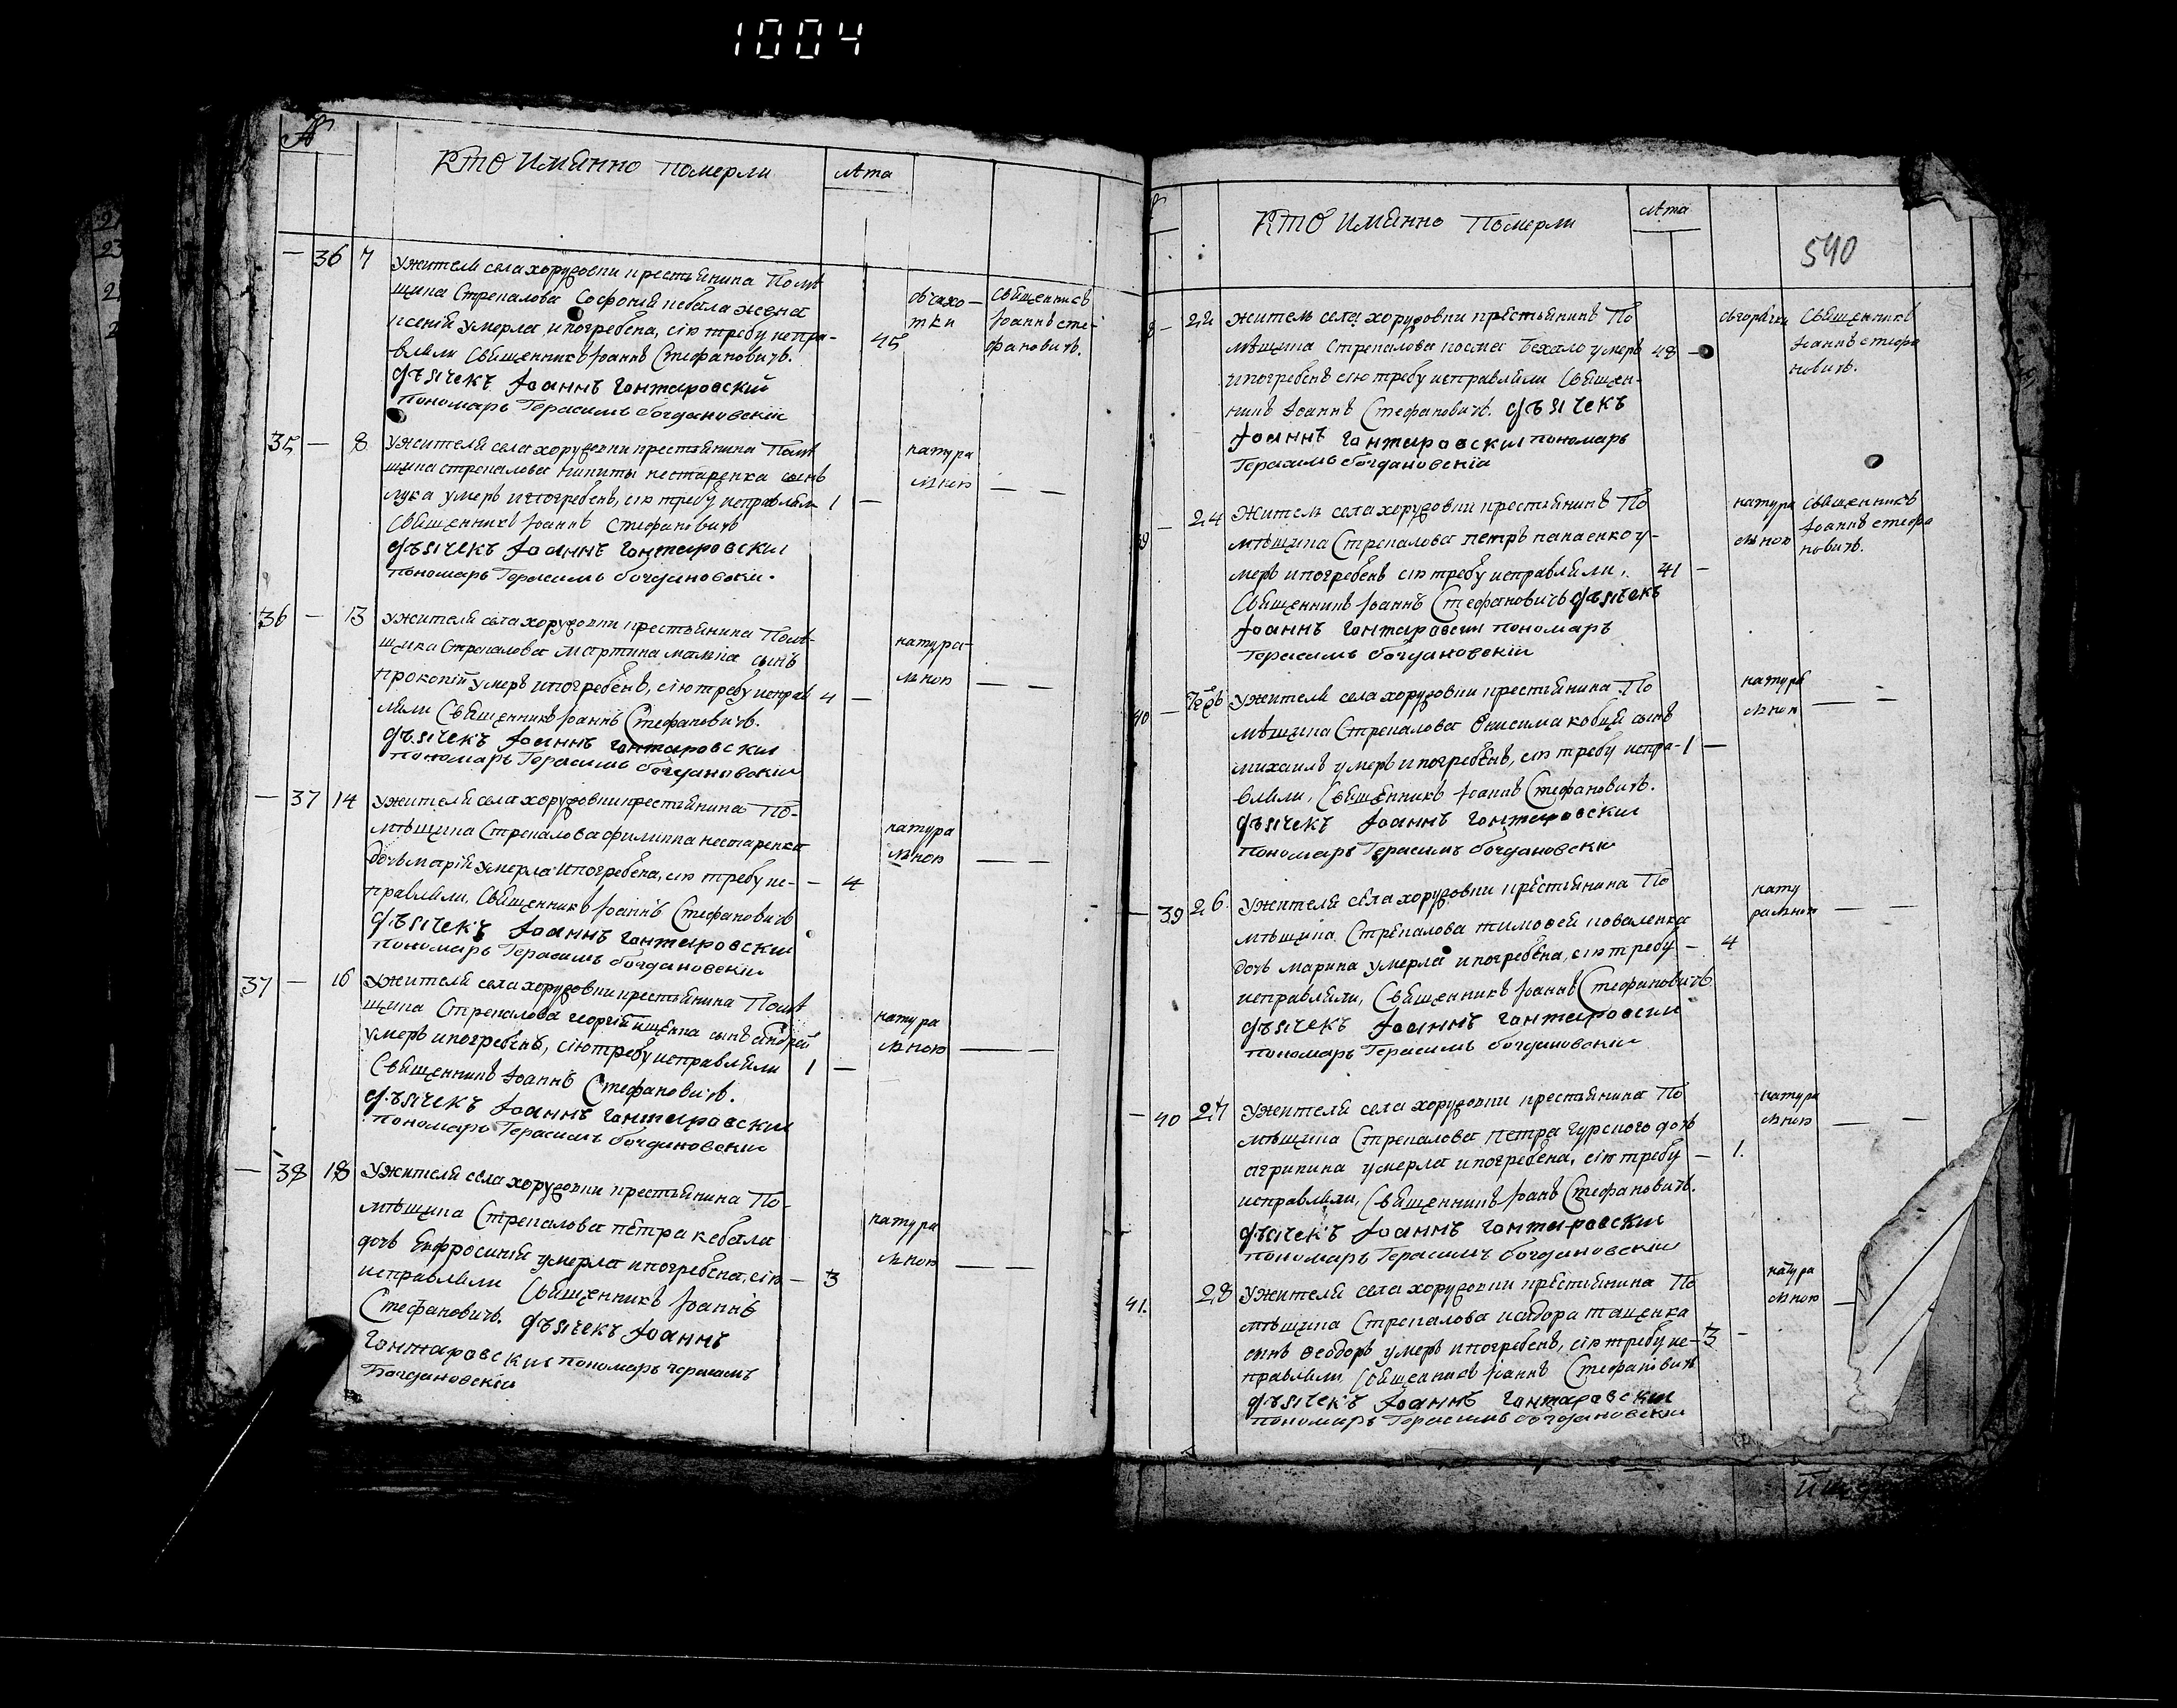 1004
№
Кто Имянно померли
лѣта
36 7
Ужителя села хоружовки крестьянина Помѣ
щика Стрекалова Софонія кебала жена
ксенія умерла и погребена, сію требу испра-
вляли Священникъ Іоаннъ Стефановичъ.
дьячекъ Іоаннъ Гонтаровскій
пономарь Герасимъ богдановскій
45
Священникъ
Іоаннъ сте-
фановичъ.
35 — 8
Ужителя села хоружовки крестьянина Помѣ
щика стрекалова никиты нестаренка сынъ
лука умеръ и погребенъ, сію требу исправляли
Священникъ Іоаннъ Стефановичъ
дьячекъ Іоаннъ Гонтаровскій
пономарь Герасимъ богдановскій.
1 —
натура
льною — —
36 — 13
Ужителя села хоружовки крестьянина Помѣ-
щика Стрекалова мартина сынъ
прокопій умеръ и погребенъ, сію требу исправ
ляли Священникъ Іоаннъ Стефановичъ.
дьячекъ Іоаннъ Гонтаровскій
пономарь Герасимъ богдановскій
4 —
натура-
льною — —
— 37 14
Ужителя села хоружовки крестьянина По-
мѣщика Стрекалова филиппа нестаренка
дочь марія умерла и погребена, сію требу ис-
правляли, Священникъ Іоаннъ Стефановичъ
дьячекъ Іоаннъ Гонтаровскій
пономарь Герасимъ богдановскій
— 4
натура
льною — —
37 — 16
Ужителя села хоружовки крестьянина Помѣ
щика Стрекалова георгія ищенка сынъ андрей
умеръ и погребенъ, сію требу исправляли
Священникъ Іоаннъ Стефановичъ.
дьячекъ Іоаннъ Гонтаровскій
пономарь Герасимъ богдановскій
1 —
натура
льною — —
— 38 18
Ужителя села хоружовки крестьянина По-
мѣщика Стрекалова петра кебала
дочь Евфросинія умерла и погребена, сію
исправляли Священникъ Іоаннъ
Стефановичъ. дьячекъ Іоаннъ
Гонтаровскій пономарь герасимъ
Богдановскій
— 3
натура
льною — —
Кто Имянно Померли
лѣта
540
— 22
житель села хоружовки крестьянинъ По
мѣщика Стрекалова косма умеръ
и погребенъ сію требу исправляли Священ-
никъ Іоаннъ Стефановичъ. дьячекъ
Іоаннъ Гонтаровскій пономарь
Герасимъ богдановскій
48 —
Священникъ
Іоаннъ стефа
новичъ.
— 24
Житель села хоружовки крестьянинъ По
мѣщика Стрекалова петръ у-
меръ и погребенъ сію требу исправляли,
Священникъ Іоаннъ Стефановичъ дьячекъ
Іоаннъ Гонтаровскій пономарь
Герасимъ богдановскій
41 —
натура
льною
Священникъ
Іоаннъ стефа
новичъ.
40 —
Ужителя села хоружовки крестьянина По
мѣщика Стрекалова Онисима сынъ
михаилъ умеръ и погребенъ, сію требу испра-
вляли, Священникъ Іоаннъ Стефановичъ.
дьячекъ Іоаннъ Гонтаровскій
пономарь Герасимъ богдановскій
1 —
натура
льною — —
— 39 26
Ужителя села хоружовки крестьянина По
мѣщика Стрекалова тимофея коваленка
дочь марина умерла и погребена, сію требу
исправляли, Священникъ Іоаннъ Стефановичъ
дьячекъ Іоаннъ Гонтаровскій
пономарь Герасимъ богдановскій
— 4
нату
ральною — —
— 40 27
Ужителя села хоружовки крестьянина По
мѣщика Стрекалова петра гурского дочь
агрипина умерла и погребена, сію требу
исправляли, Священникъ Іоаннъ Стефановичъ.
дьячекъ Іоаннъ Гонтаровскій
пономарь Герасимъ богдановскій
— 1.
натура
льною — —
41. 28
Ужителя села хоружовки крестьянина По
мѣщика Стрекалова исидора тащенка
сынъ Ѳеодоръ умеръ и погребенъ, сію требу ис-
правляли Священникъ Іоаннъ Стефановичъ
дьячекъ Іоаннъ Гонтаровскій
пономарь Герасимъ богдановскій
3 —
натура
льною —